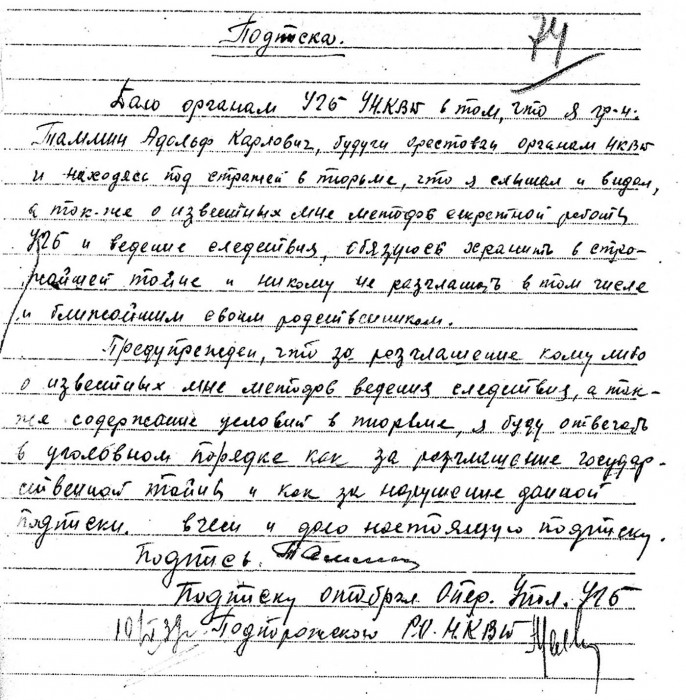 Подписка.
74
Дано органам УГБ УНКВД в том, что я гр-н.
Таммин Адольф Карлович, будучи арестован органам НКВД
и находясь под стражей в тюрьме, что я слышал и видал,
а так-же о известных мне методов секретной работы
УГБ и ведение следствия, обязуюсь хранить в стро-
жайшей тайне и никому не разглашать в том числе
и ближайшим своим родственником.
Предупрежден, что за разглашение кому либо
о известных мне методов ведения следствия, а так-
же содержание условий в тюрьме, я буду отвечать
в уголовном порядке как за разглашение государ-
ственной тайны и как за нарушение данной
подписки. в чем и даю настоящую подписку.
Подпись.
Подписку отобрал Опер. Упол. УГБ
Подпорожского Р.О. НКВД